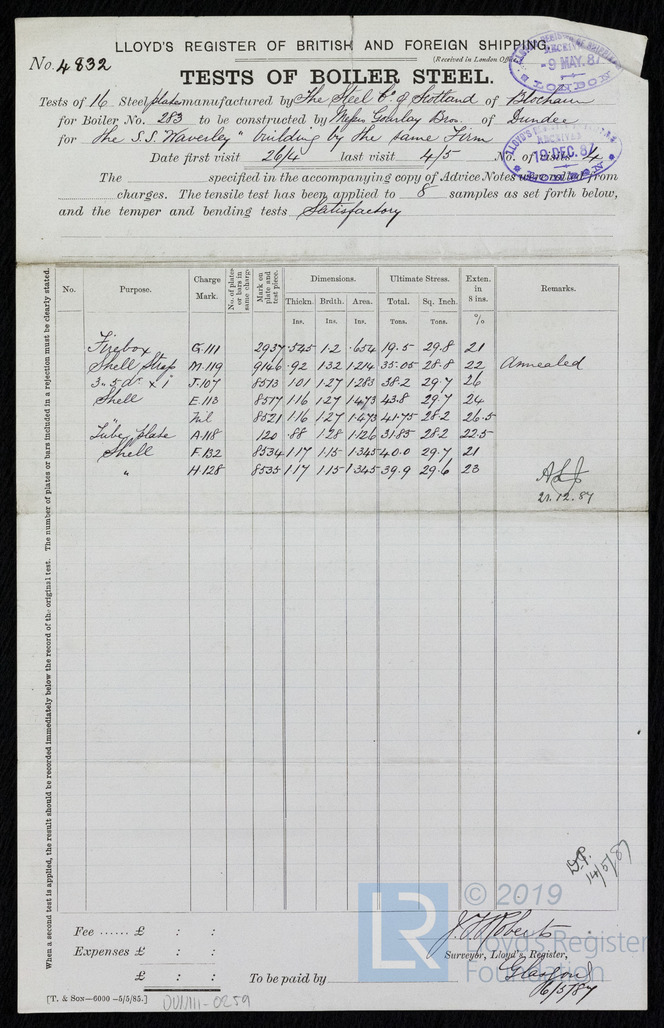 LLOYD'S REGISTER OF BRITISH AND FOREIGN SHIPPING.
No. 4832
(Received in London Office
RECEIVED
-9 MAY.87
LONDON
TESTS OF BOILER STEEL.
Tests of 16 Steel plates manufactured by The Steel Co. of Scotland of Blochairn
for Boiler No. 253 to be constructed by Messrs Gourlay Bros. of Dundee
for the S.S. "Waverley" building by the same Firm
RECEIVED
19 DEC.87
LONDON
Date first visit 26/4 last visit 4/5 No. of visits 4
The specified in the accompanying copy of Advice Notes were rolled from
charges. The tensile test has been applied to 8 samples as set forth below,
and the temper and bending tests Satisfactory
When a second test is applied, the result should be recorded immediately below the record of the original test. The number of plates or bars included in a rejection must be clearly stated.
No. Purpose. Charge Mark. No. of plates or bars in same charge Mark on plate and test piece. Dimensions. Ultimate Stress. Exten. in 8 ins. Remarks.
Thickn. Brdth. Area. Total. Sq. Inch.
Ins. Ins. Ins. Tons. Tons. %
Firebox G.111 2937 .545 1.2 .654 19.5 29.8 21
Shell Strap M.119 9146 .92 1.32 1.214 35.05 28.8 22 Annealed
J.107 8513 1.01 1.27 1.283 38.2 29.7 26
Shell E.113 8517 1.16 1.27 1.473 43.8 29.7 24
" Nil 8521 1.16 1.27 1.473 41.75 28.2 26.5
Tube plate A.118 120 .88 1.28 1.126 31.85 28.2 22.5
Shell F.132 8534 1.17 1.15 1.345 40.0 29.7 21
" H.128 8535 1.17 1.15 1.345 39.9 29.6 23
21.12.87
14/5/87
Fee ...... £ : :
Expenses £ : :
£ : :
To be paid by
J. T. Roberts
Surveyor, Lloyd's Register,
Glasgow
6/5/87
[T. & Son—6000—5/5/85.]
DUN111-0259
LR
© 2019
Lloyd's Register
Foundation